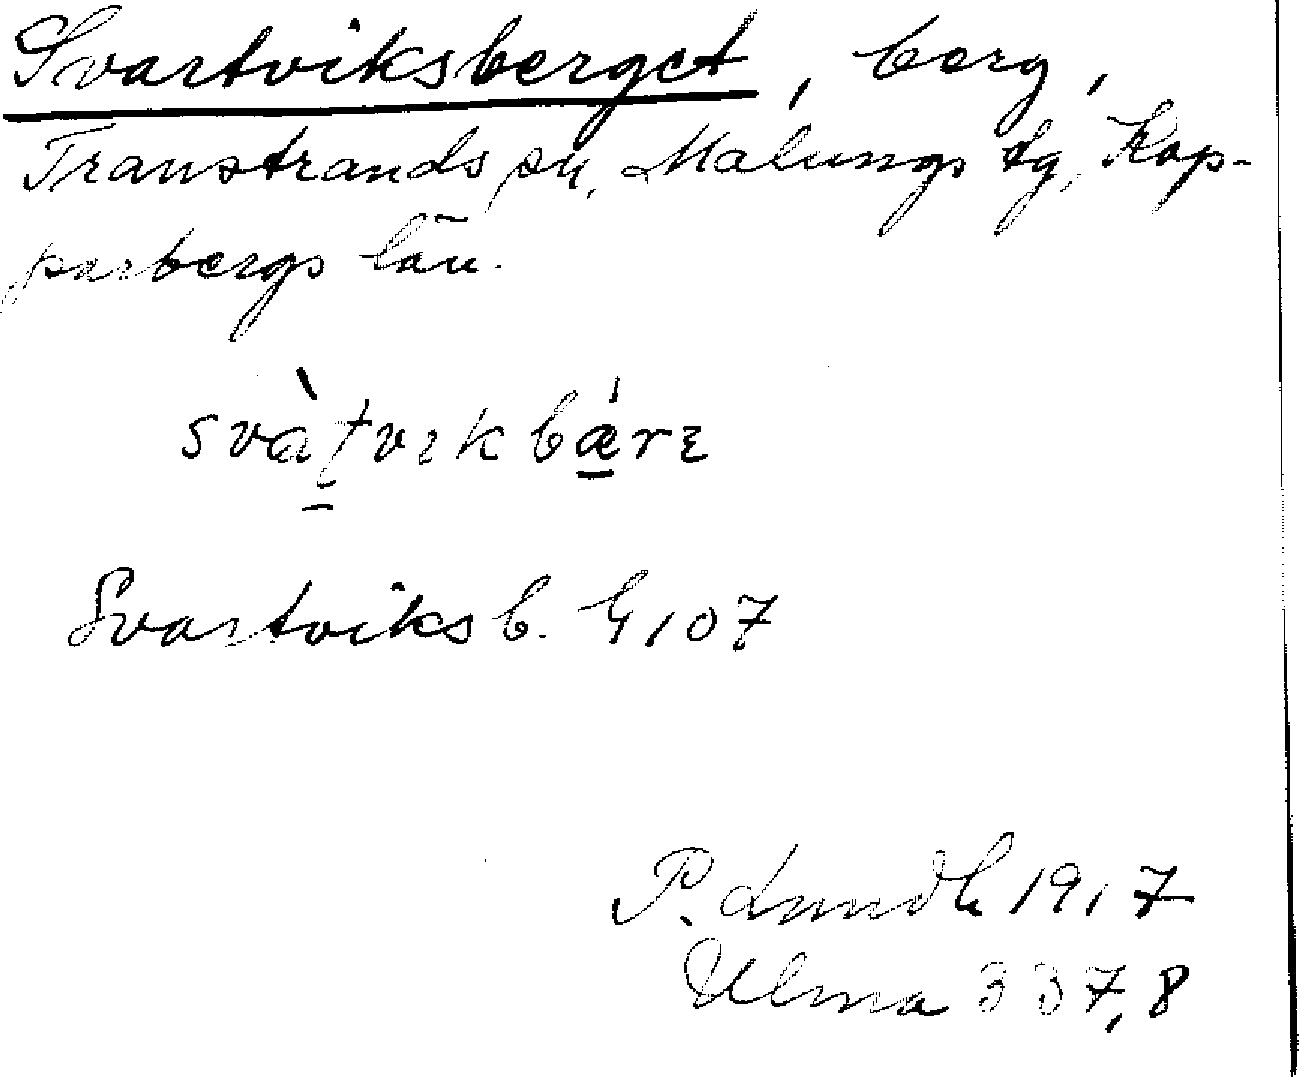 Svartviksberget, berg,
Transtrands sn, Malungs tg, Kop-
parbergs län.
svàtvıkbǽrɛ
Svartviksb. G 107
P. Lundh 1917
Ulma 337,8